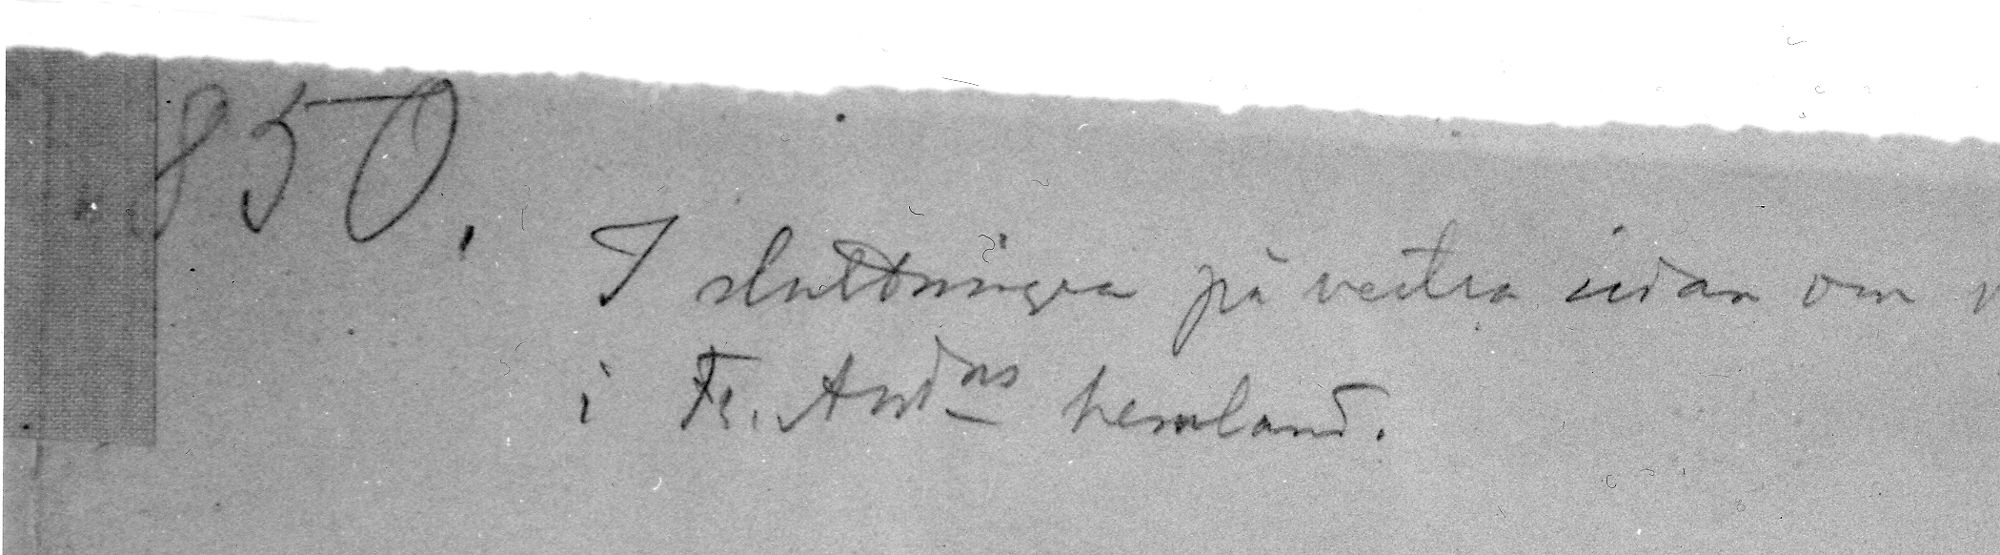 850.
I sluttningen på vestra sidan om
i Fr. Andns hemland.